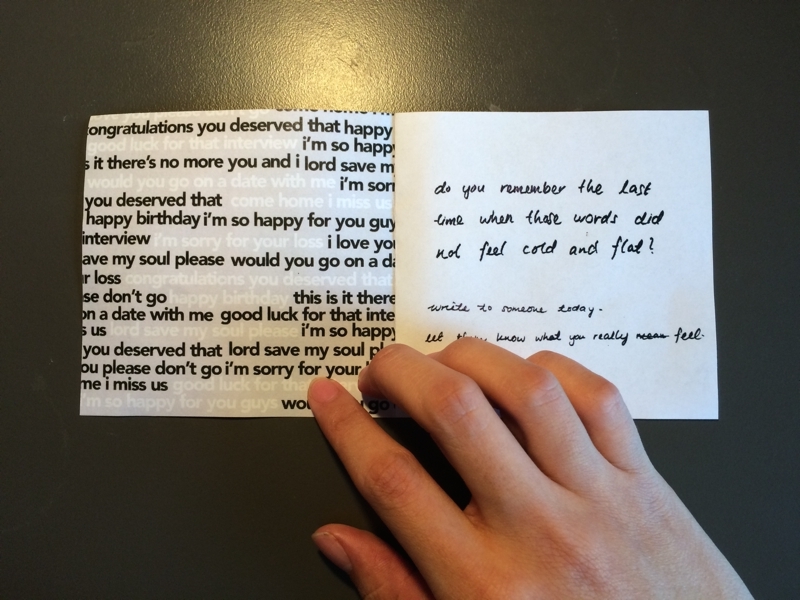 come home i m
ongratulations you deserved that happy
good luck for that interview i'm so happy
s it there's no more you and i lord save m
would you go on a date with me i'm sorr
you deserved that come home i miss us
happy birthday i'm so happy for you guy
interview i'm sorry for your loss i love you
ave my soul please would you go on a da
r loss congratulations you deserved that
se don't go happy birthday this is it there
on a date with me good luck for that inte
s us lord save my soul please i'm so happy
you deserved that lord save my soul pl
ou please don't go i'm sorry for your
me i miss us good luck for that
i'm so happy for you guys would you go
do you remember the last
time when those words did
not feel cold and flat?
write to someone today.
let them know what you really mean feel.